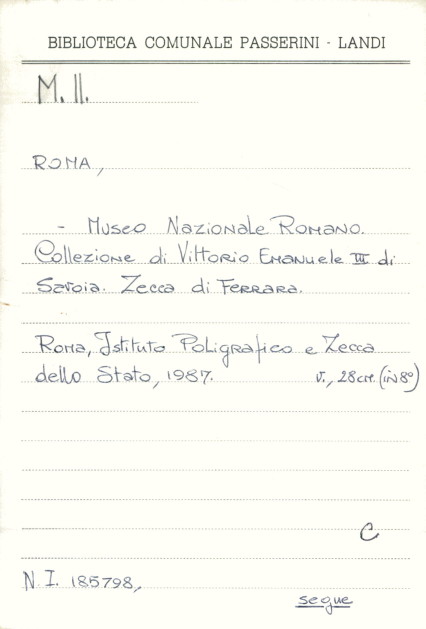 BIBLIOTECA COMUNALE PASSERINI - LANDI
M. II.
ROMA,
- Museo Nazionale Romano.
Collezione di Vittorio Emanuele III di
Savoia. Zecca di Ferrara.
Roma, Istituto Poligrafico e Zecca
dello Stato, 1987. v., 28 cm. (in 8°)
C
N. I. 185798,
segue